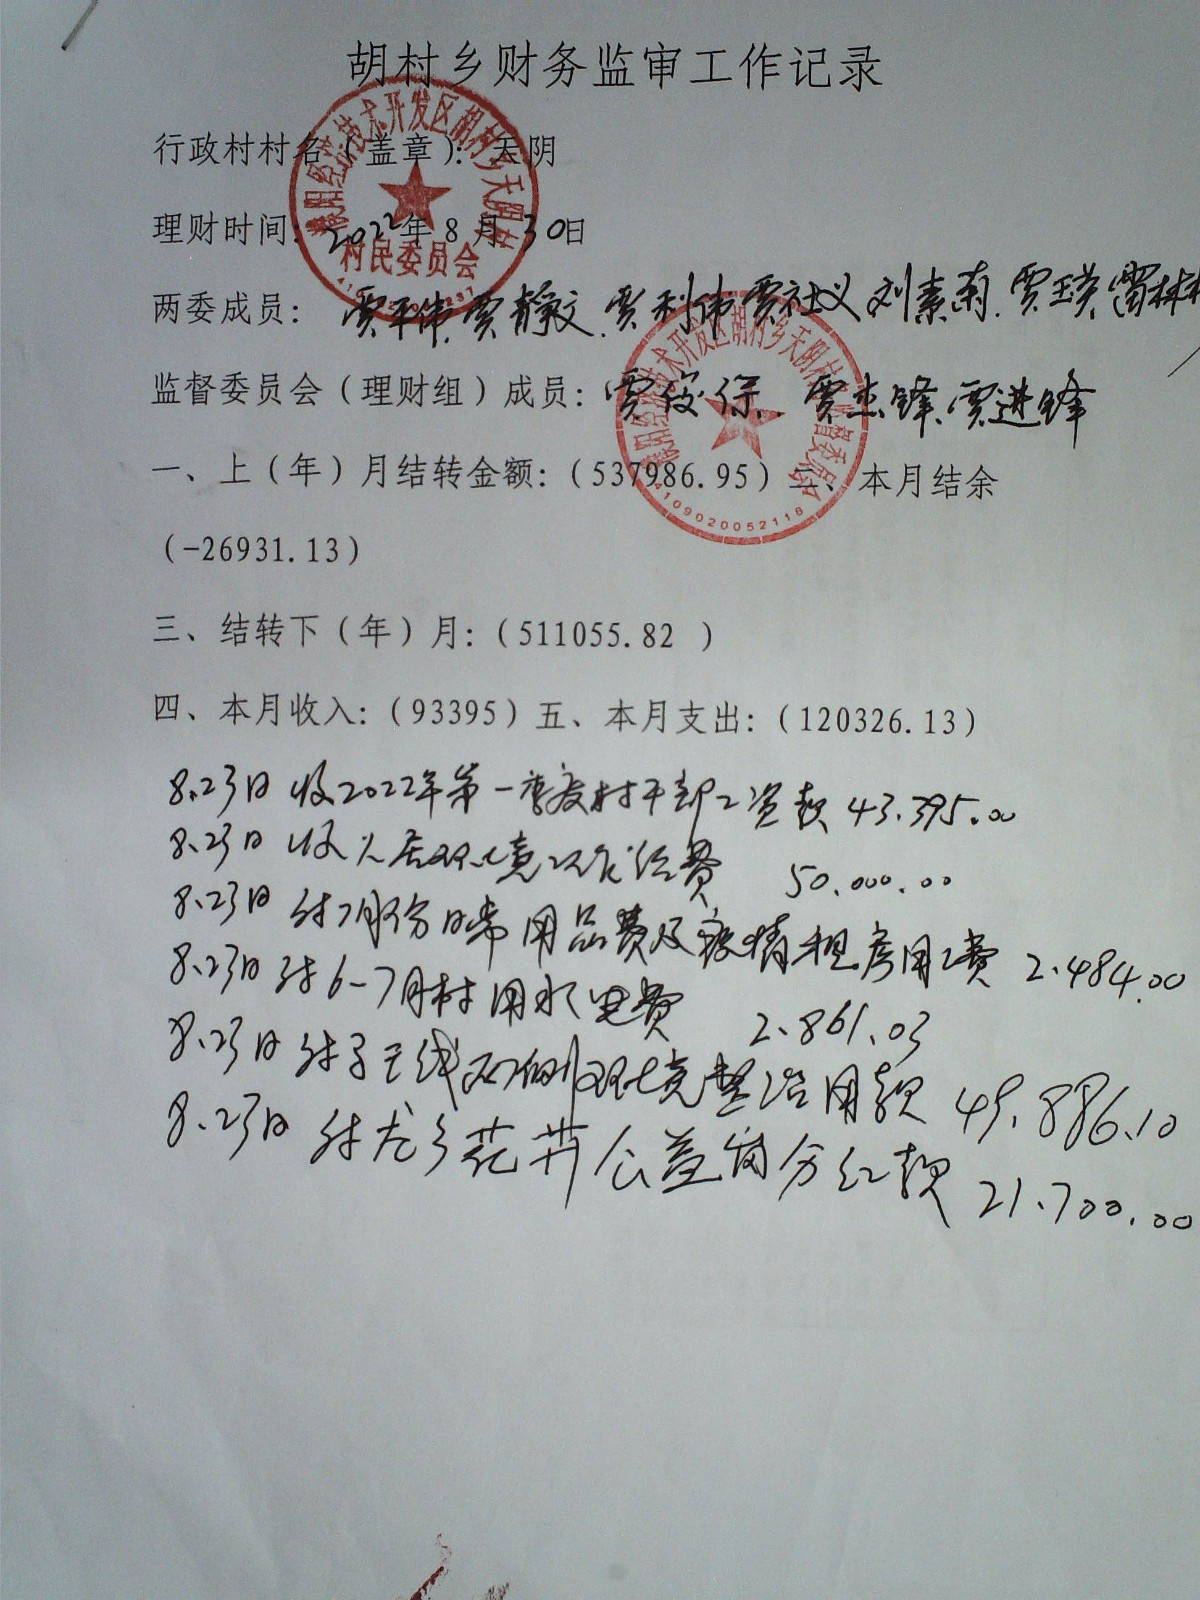 胡村乡财务监审工作记录
行政村村名（盖章）：天阴
理财时间：2022年8月30日
两委成员：贾平伟 贾静文 贾利伟 贾社义 刘素莉 贾瑛 雷林林
监督委员会（理财组）成员：贾俊保 贾杰锋 贾进锋
一、上（年）月结转金额：（537986.95）二、本月结余
（-26931.13）
三、结转下（年）月：（511055.82 ）
四、本月收入：（93395）五、本月支出：（120326.13）
8.23日 收2022年第一季度村干部工资款 43.395.00
8.23日 收人居环境工作经费 50.000.00
8.23日 付7月份日常用品费及疫情租房用工费 2.484.00
8.23日 付6-7月村用水电费 2.861.03
8.23日 付子王线两侧环境整治用款 49.886.10
8.23日 付龙乡花卉公益岗分红款 21.700.00
濮阳经济技术开发区胡村乡天阴村
村民委员会
濮阳经济技术开发区胡村乡天阴村监督委员会
4109020052118